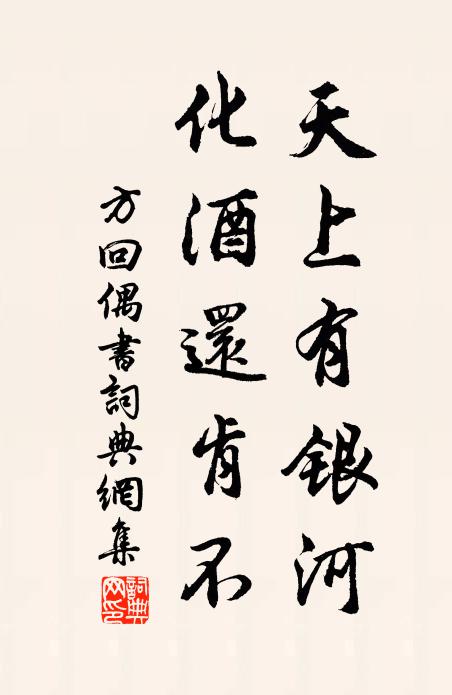 天上有銀河
化酒還肯不
方回偶書詞典網集
詞典网印